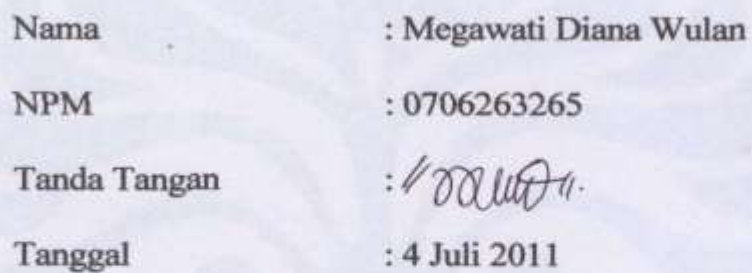 Nama : Megawati Diana Wulan
NPM : 0706263265
Tanda Tangan :
Tanggal : 4 Juli 2011